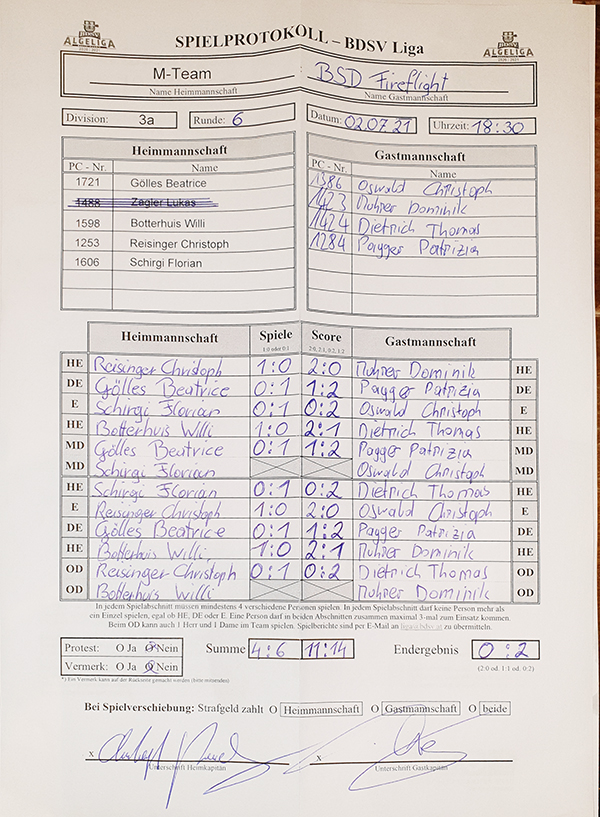 BDSV
ALGELIGA
SPIELPROTOKOLL – BDSV Liga
BDSV
ALGELIGA
M-Team BSD Fireflight
Name Heimmannschaft Name Gastmannschaft
Division: 3a Runde: 6 Datum: 02.07.21 Uhrzeit: 18:30
Heimmannschaft Gastmannschaft
PC - Nr. Name PC - Nr. Name
1721 Gölles Beatrice 1386 Oswald Christoph
1488 Zagler Lukas 1423 Muhrer Dominik
1598 Botterhuis Willi 1424 Dietrich Thomas
1253 Reisinger Christoph 1284 Pagger Patrizia
1606 Schirgi Florian
Heimmannschaft Spiele Score Gastmannschaft
1:0 oder 0:1 2:0, 2:1, 0:2, 1:2
HE Reisinger Christoph 1:0 2:0 Muhrer Dominik HE
DE Gölles Beatrice 0:1 1:2 Pagger Patrizia DE
E Schirgi Florian 0:1 0:2 Oswald Christoph E
HE Botterhuis Willi 1:0 2:1 Dietrich Thomas HE
MD Gölles Beatrice 0:1 1:2 Pagger Patrizia MD
MD Schirgi Florian Oswald Christoph MD
HE Schirgi Florian 0:1 0:2 Dietrich Thomas HE
E Reisinger Christoph 1:0 2:0 Oswald Christoph E
DE Gölles Beatrice 0:1 1:2 Pagger Patrizia DE
HE Botterhuis Willi 1:0 2:1 Muhrer Dominik HE
OD Reisinger Christoph 0:1 0:2 Dietrich Thomas OD
OD Botterhuis Willi Muhrer Dominik OD
In jedem Spielabschnitt müssen mindestens 4 verschiedene Personen spielen. In jedem Spielabschnitt darf keine Person mehr als
ein Einzel spielen, egal ob HE, DE oder E. Eine Person darf in beiden Abschnitten zusammen maximal 3-mal zum Einsatz kommen.
Beim OD kann auch 1 Herr und 1 Dame im Team spielen. Spielberichte sind per E-Mail an liga@bdsv.at zu übermitteln.
Protest: O Ja O Nein Summe 4:6 11:14 Endergebnis 0:2
Vermerk: O Ja O Nein (2:0 od. 1:1 od. 0:2)
*) Ein Vermerk kann auf der Rückseite gemacht werden (bitte umblättern)
Bei Spielverschiebung: Strafgeld zahlt O Heimmannschaft O Gastmannschaft O beide
x x
Unterschrift Heimkapitän Unterschrift Gastkapitän